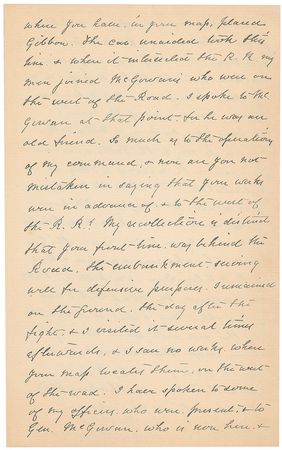 when you have, in your map, placed
Gibbon. The cav. unaided took this
line & when it intersected the R. R. my
men joined McGowans who were on
the west of the Road. I spoke to Mc
Gowan at that point, for he was an
old friend. So much as to the operations
of my command, & now are you not
mistaken in saying that your works
were in advance of & to the west of
the R. R.? My recollection is distinct
that your front line was behind the
Road. The embankment serving
well for defensive purposes. I remained
on the ground the day after the
fight, & I visited it several times
afterwards, & I saw no works, where
your map locates them, on the west
of the road. I have spoken to some
of my officers who were present, & to
Gen. McGowan, who is now here, &